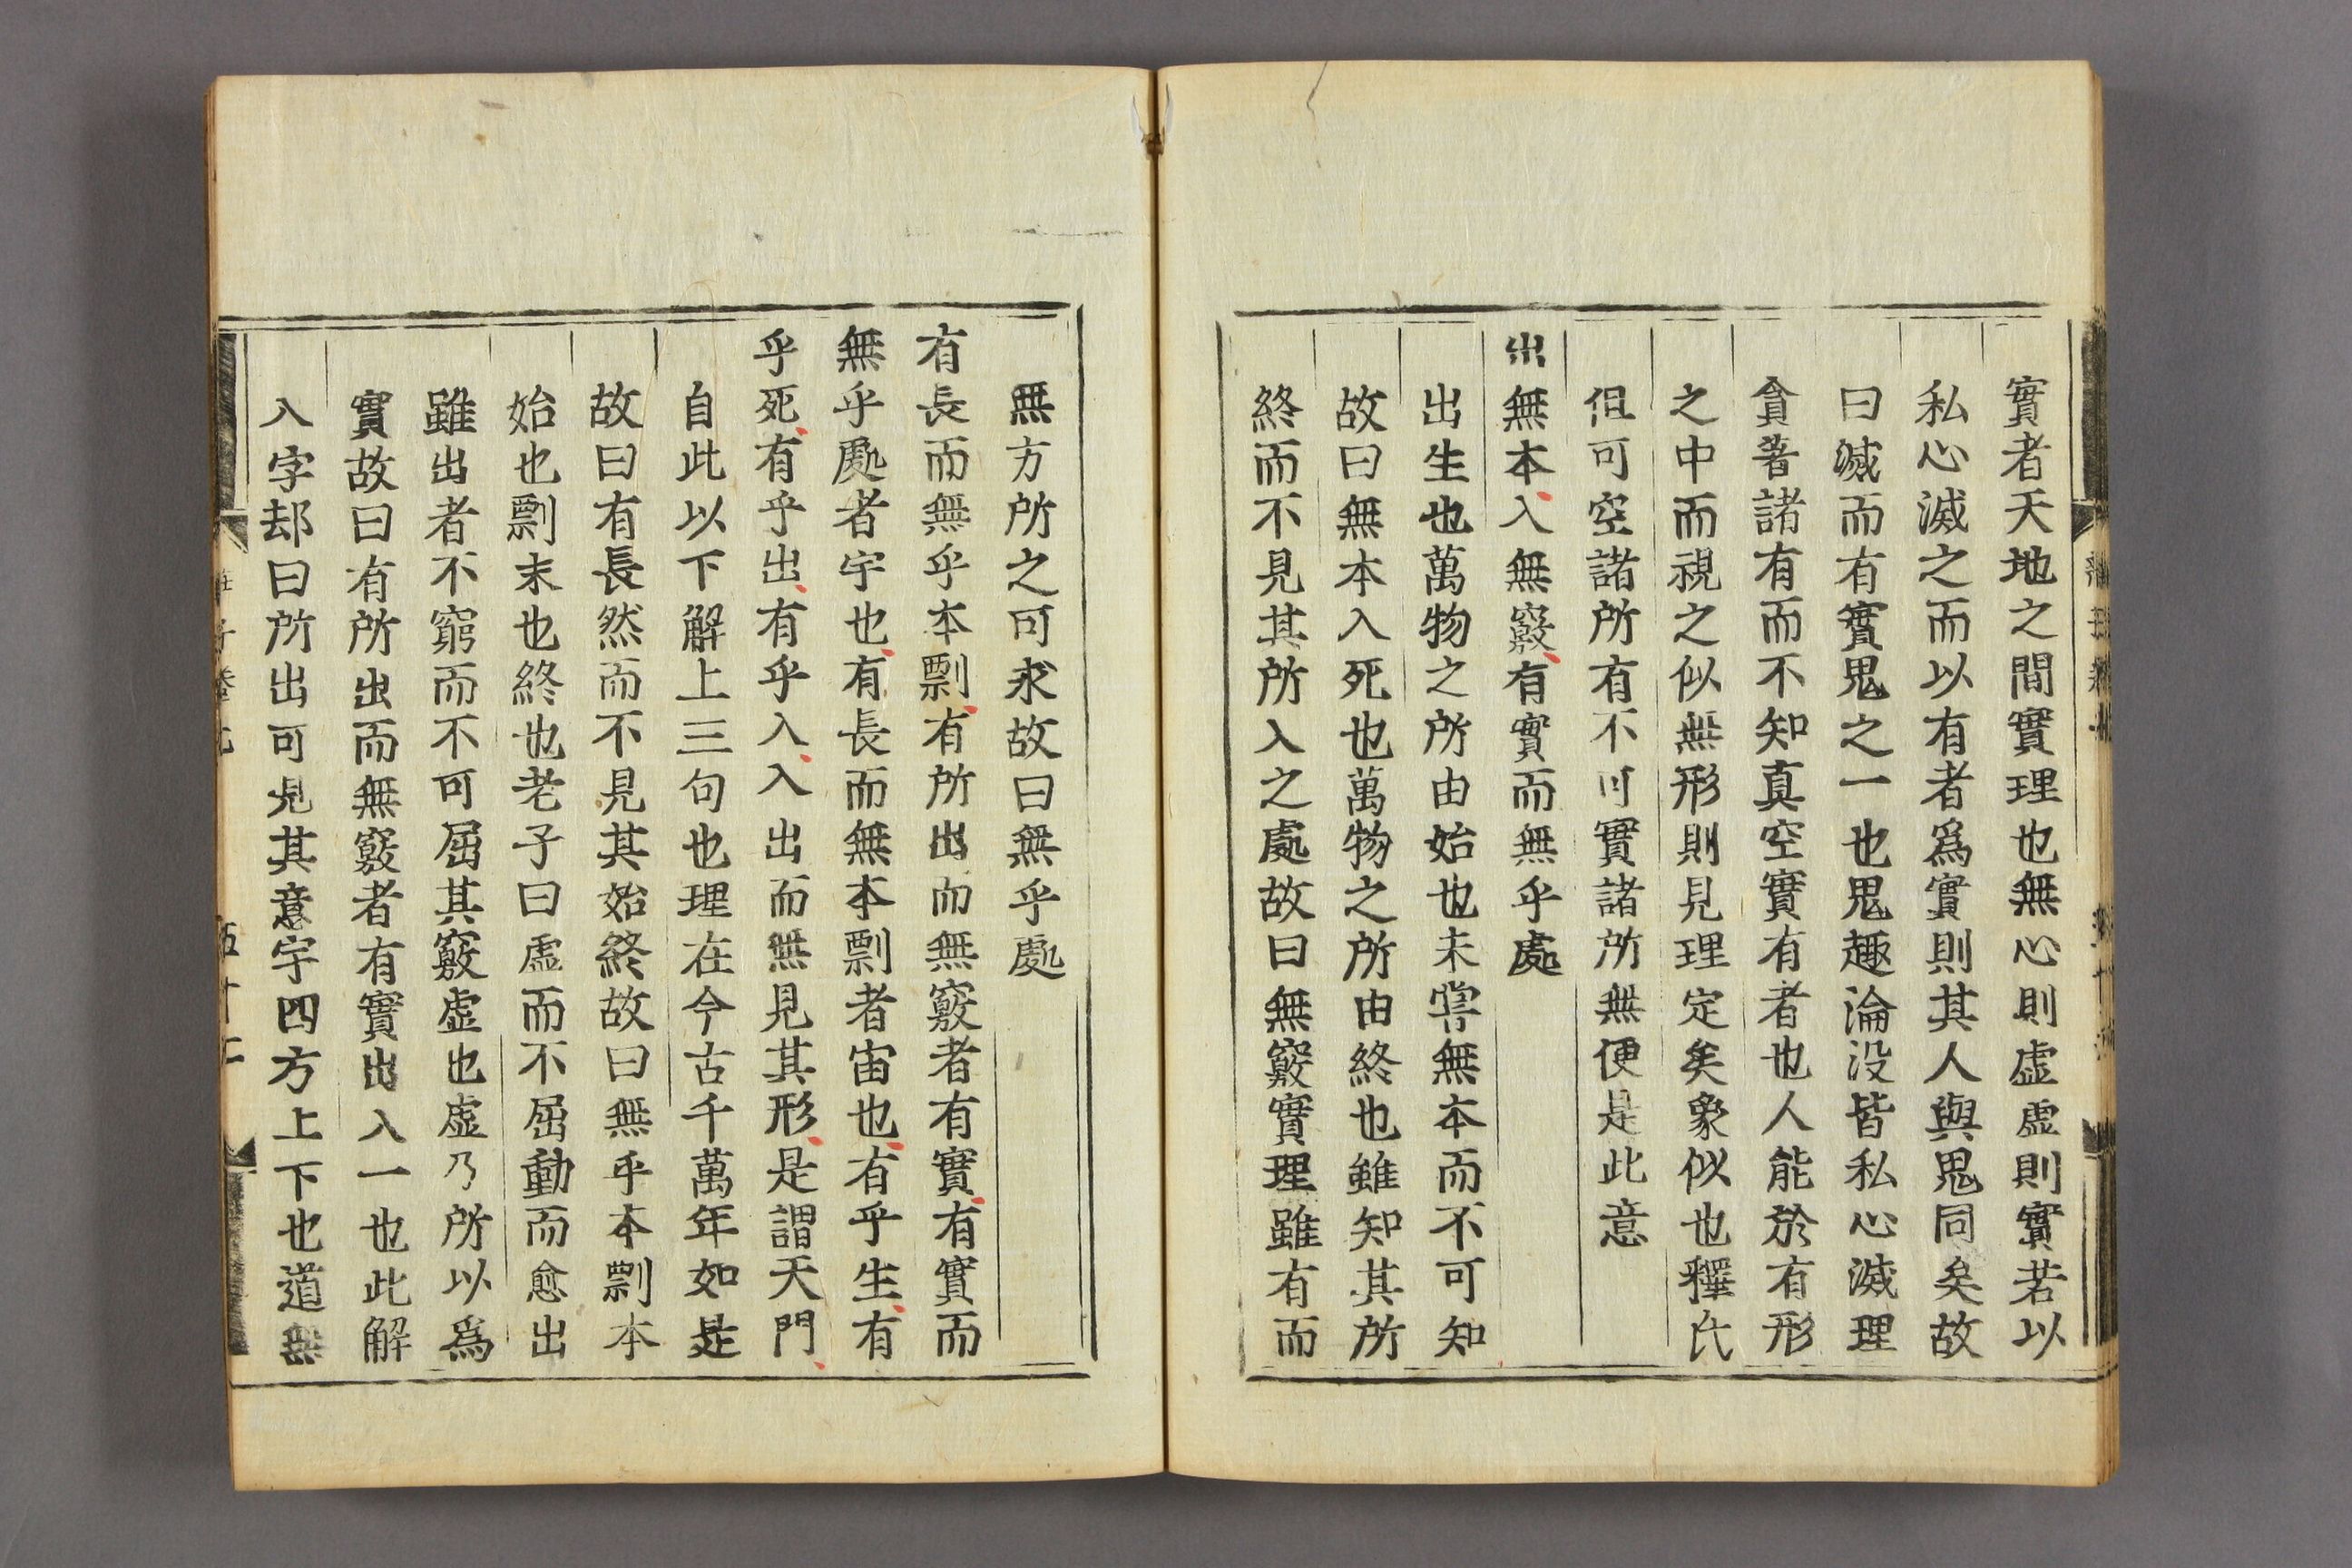 實者天地之間實理也無心則虛虛則實若以
私心滅之而以有者爲實則其人與鬼同矣故
曰滅而有實鬼之一也鬼趣淪没皆私心滅理
貪著諸有而不知真空實有者也人能於有形
之中而視之似無形則見理定矣象似也釋氏
但可空諸所有不可實諸所無便是此意
出無本入無竅有實而無乎處
出生也萬物之所由始也未甞無本而不可知
故曰無本入死也萬物之所由終也雖知其所
終而不見其所入之處故曰無竅實理雖有而
無方所之可求故曰無乎處
有長而無乎本剽有所出而無竅者有實有實而
無乎處者宇也有長而無本剽者宙也有乎生有
乎死有乎出有乎入入出而無見其形是謂天門
自此以下解上三句也理在今古千萬年如是
故曰有長然而不見其始終故曰無乎本剽本
始也剽末也終也老子曰虛而不屈動而愈出
雖出者不窮而不可屈其竅虛也虛乃所以爲
實故曰有所出而無竅者有實出入一也此解
入字却曰所出可見其意宇四方上下也道無